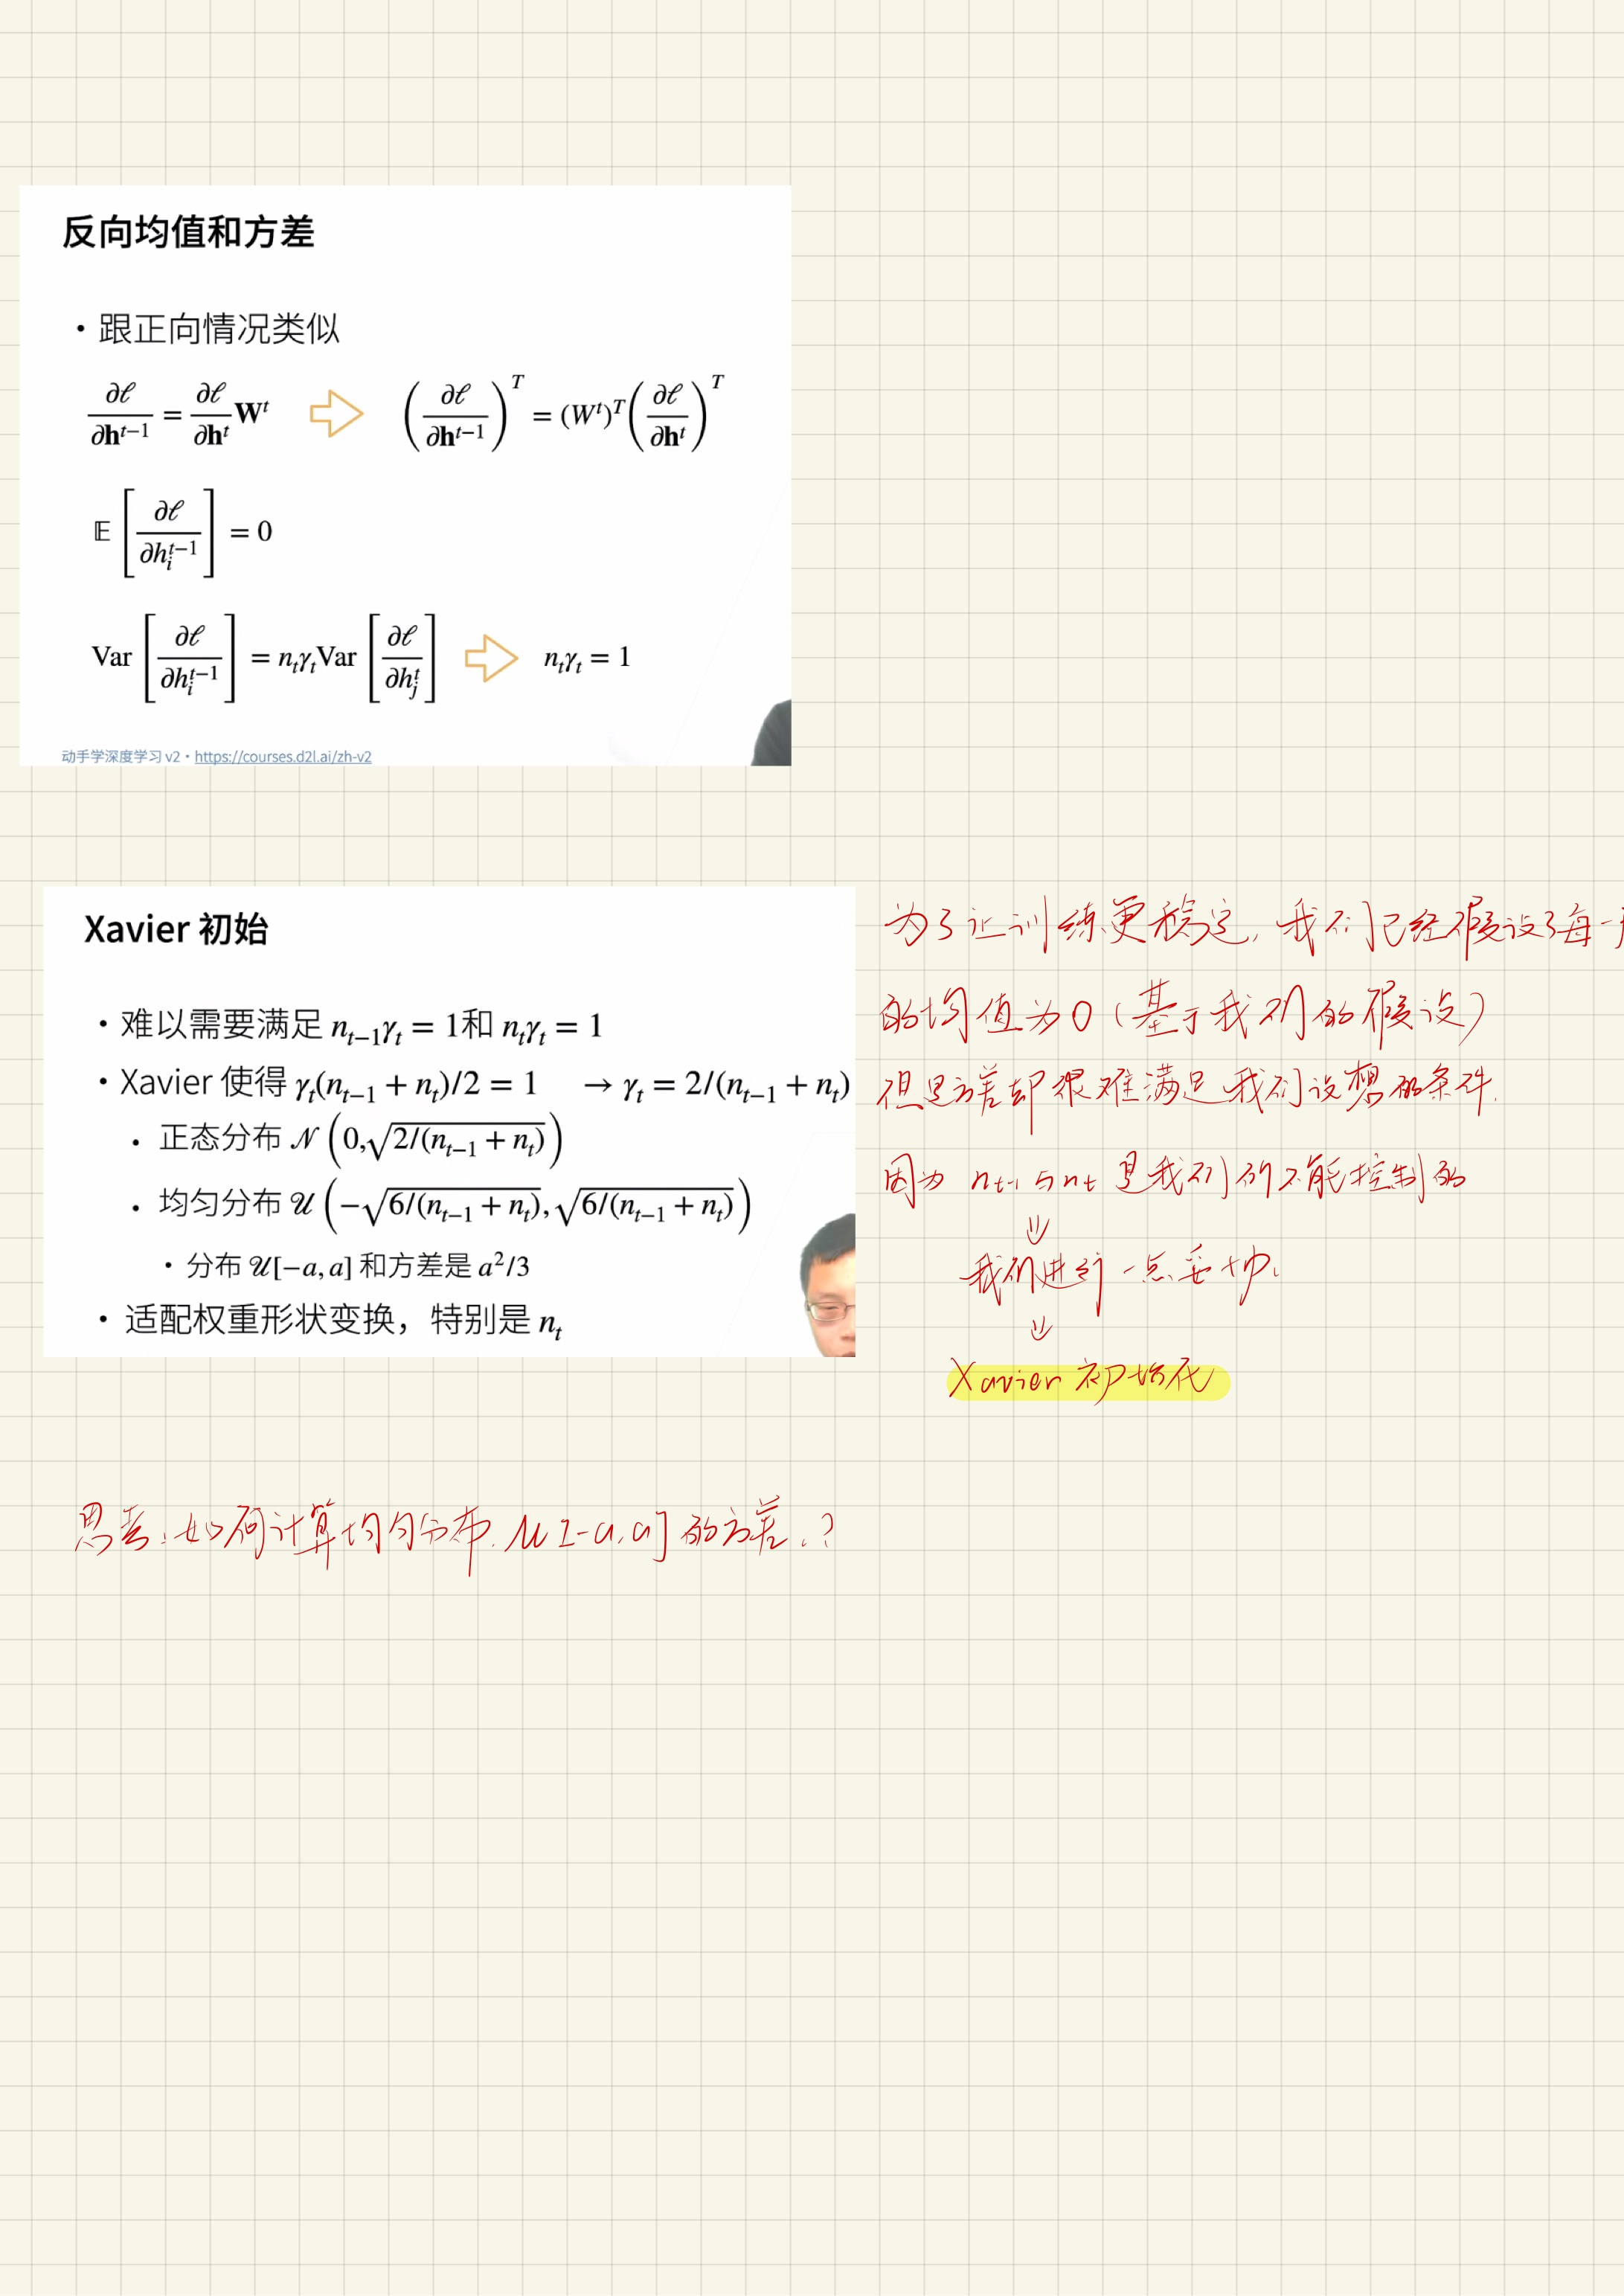 反向均值和方差
• 跟正向情况类似
∂ℓ/∂h^{t−1} = ∂ℓ/∂h^t W^t ⇨ (∂ℓ/∂h^{t−1})^T = (W^t)^T (∂ℓ/∂h^t)^T
𝔼[∂ℓ/∂h_i^{t−1}] = 0
Var[∂ℓ/∂h_i^{t−1}] = n_tγ_tVar[∂ℓ/∂h_j^t] ⇨ n_tγ_t = 1
动手学深度学习 v2 • https://courses.d2l.ai/zh-v2
Xavier 初始
• 难以需要满足 n_{t−1}γ_t = 1和 n_tγ_t = 1
• Xavier 使得 γ_t(n_{t−1} + n_t)/2 = 1 → γ_t = 2/(n_{t−1} + n_t)
• 正态分布 𝒩(0,√(2/(n_{t−1} + n_t)))
• 均匀分布 𝒰(−√(6/(n_{t−1} + n_t)),√(6/(n_{t−1} + n_t)))
• 分布 𝒰[−a, a] 和方差是 a²/3
• 适配权重形状变换，特别是 n_t
为了让训练更稳定, 我们已经假设了每一
的均值为0 (基于我们的假设)
但是方差却很难满足我们设想的条件.
因为 n_{t-1} 与 n_t 是我们所不能控制的
⇓
我们进行一点妥协.
⇓
Xavier 初始化
思考: 如何计算均匀分布. U[-a,a] 的方差.?